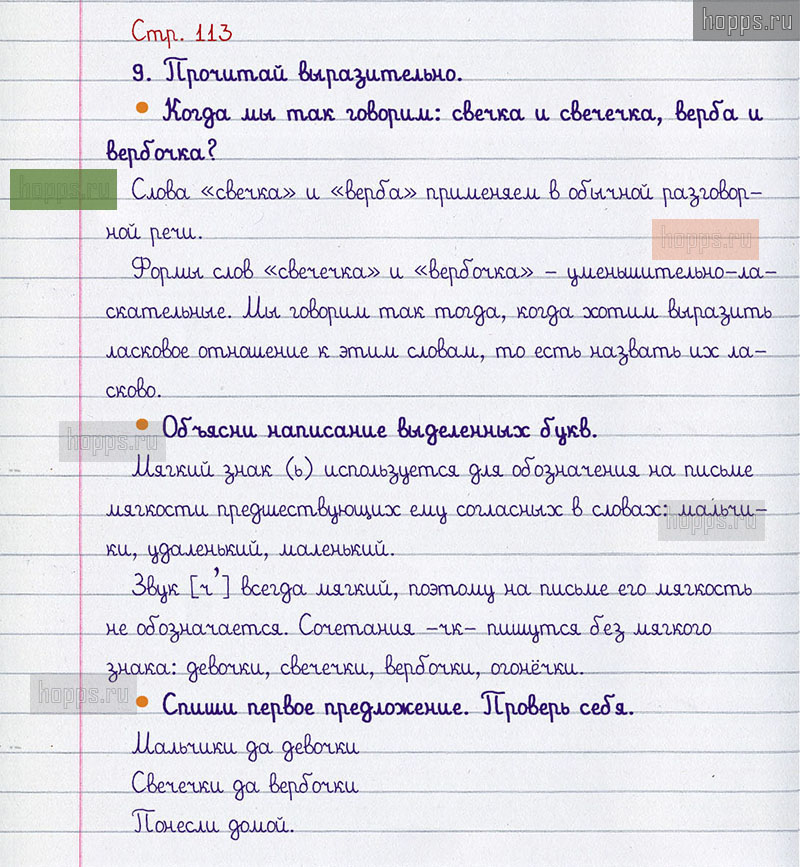 hopps.ru
Стр. 113
9. Прочитай выразительно.
• Когда мы так говорим: свечка и свечечка, верба и
вербочка?
hopps.ru
Слова «свечка» и «верба» применяем в обычной разговор-
ной речи.
hopps.ru
Формы слов «свечечка» и «вербочка» – уменьшительно-ла-
скательные. Мы говорим так тогда, когда хотим выразить
ласковое отношение к этим словам, то есть назвать их ла-
сково.
• Объясни написание выделенных букв.
hopps.ru
Мягкий знак (ь) используется для обозначения на письме
мягкости предшествующих ему согласных в словах: мальчи-
hopps.ru
ки, удаленький, маленький.
Звук [ч’] всегда мягкий, поэтому на письме его мягкость
не обозначается. Сочетания –чк– пишутся без мягкого
знака: девочки, свечечки, вербочки, огонёчки.
hopps.ru
• Спиши первое предложение. Проверь себя.
Мальчики да девочки
Свечечки да вербочки
Понесли домой.